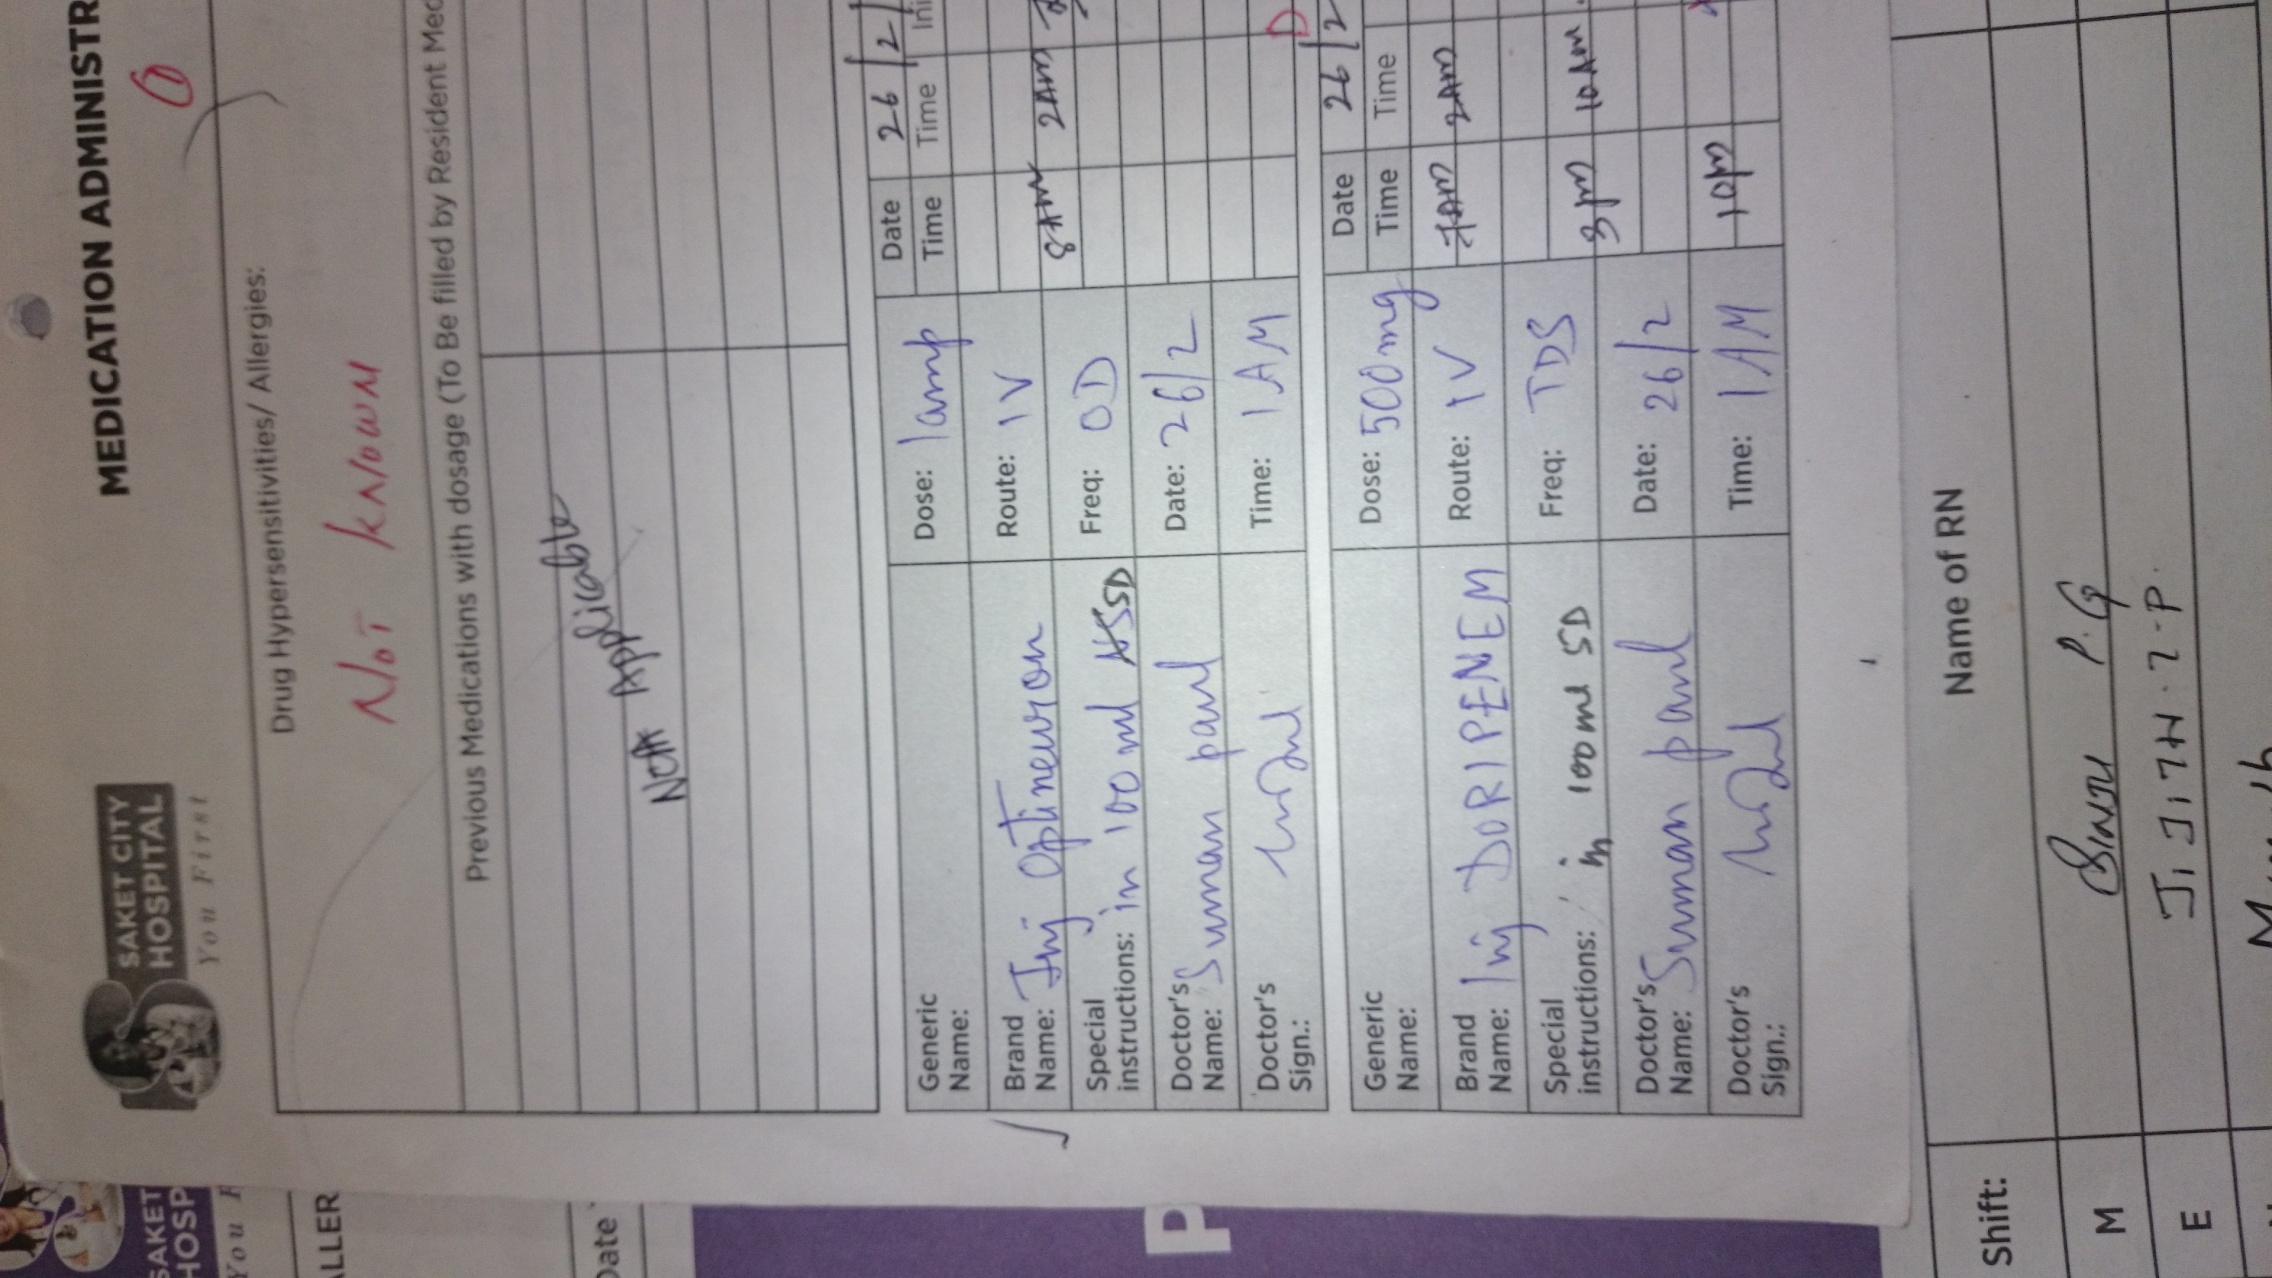 MEDICATION ADMINISTR
SAKET CITY
HOSPITAL
You First
Drug Hypersensitivities/ Allergies:
NOT KNOWN
Previous Medications with dosage (To Be filled by Resident Med
Not Applicable
Generic Name:
Dose: 1amp
Date 26/2/
Time Time Ini
Brand Name: Inj Optineuron
Route: IV
Special instructions: in 100 ml NS 5D
Freq: OD
8AM 2AM
Doctor's Name: Suman paul
Date: 26/2
Doctor's Sign.:
Time: 1 AM
D
Generic Name:
Dose: 500mg
Date 26/2
Time Time
Brand Name: Inj DORIPENEM
Route: IV
7AM 2AM
Special instructions: in 100ml 5D
Freq: TDS
3pm 10AM
Doctor's Name: Suman paul
Date: 26/2
Doctor's Sign.:
Time: 1 AM
10pm
SAKET
HOSP
You F
ALLER
Date
P
Shift: Name of RN
M Binsu P.G
E JiJiN.Z.P.